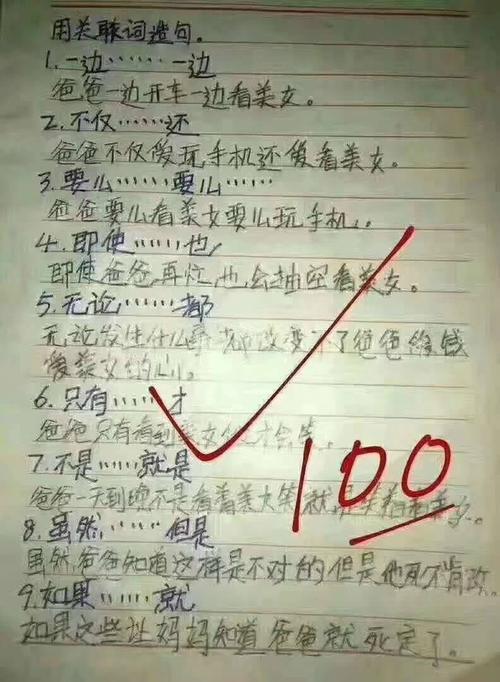 用关联词造句。
1.一边……一边
爸爸一边开车一边看美女。
2.不仅……还
爸爸不仅爱玩手机还爱看美女。
3.要么……要么……
爸爸要么看美女要么玩手机。
4.即使……也,
即使爸爸,再忙,也,会抽空看美女。
5.无论……都
无论发生什么事都改变不了爸爸
爱美女的心。
6.只有……才
爸爸只有看到美女他才会笑。
7.不是……就是
爸爸一天到晚不是看着美女笑就是
8.虽然……但是
虽然爸爸知道这样是不对的但是他死不肯改。
9.如果……就
如果这些让妈妈知道爸爸就死定了。
100